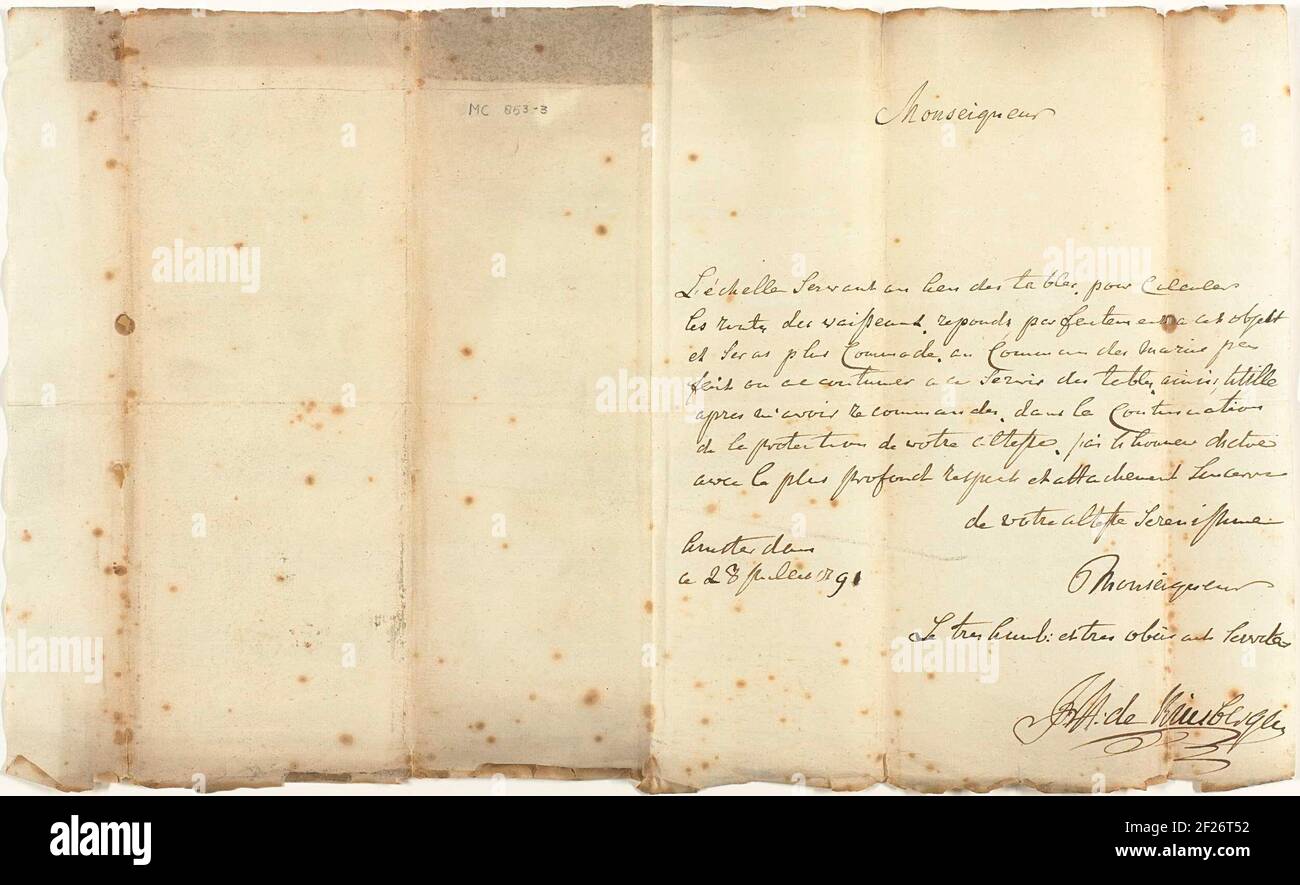 MC 853-3
Monseigneur
L'échelle Servant au lieu des tables, pour Calculer
les routes des vaisseaux, reponds parfaitement a cet objet
et Seras plus Commode, au Commun des marins peu
fait ou accoutumer a ce Servir des tables,
apres m'avoir recommandes, dans la Continuation
de la protection de votre altesse, j'ai l'honneur
avec le plus profond respect et attachement Sincere
de votre altesse Serenissime
Amsterdam
ce 23 91
Monseigneur
Le tres humb: et tres obeisant Serviteur
de Kinsbergen
alamy
alamy
Image ID: 2F26T52
www.alamy.com